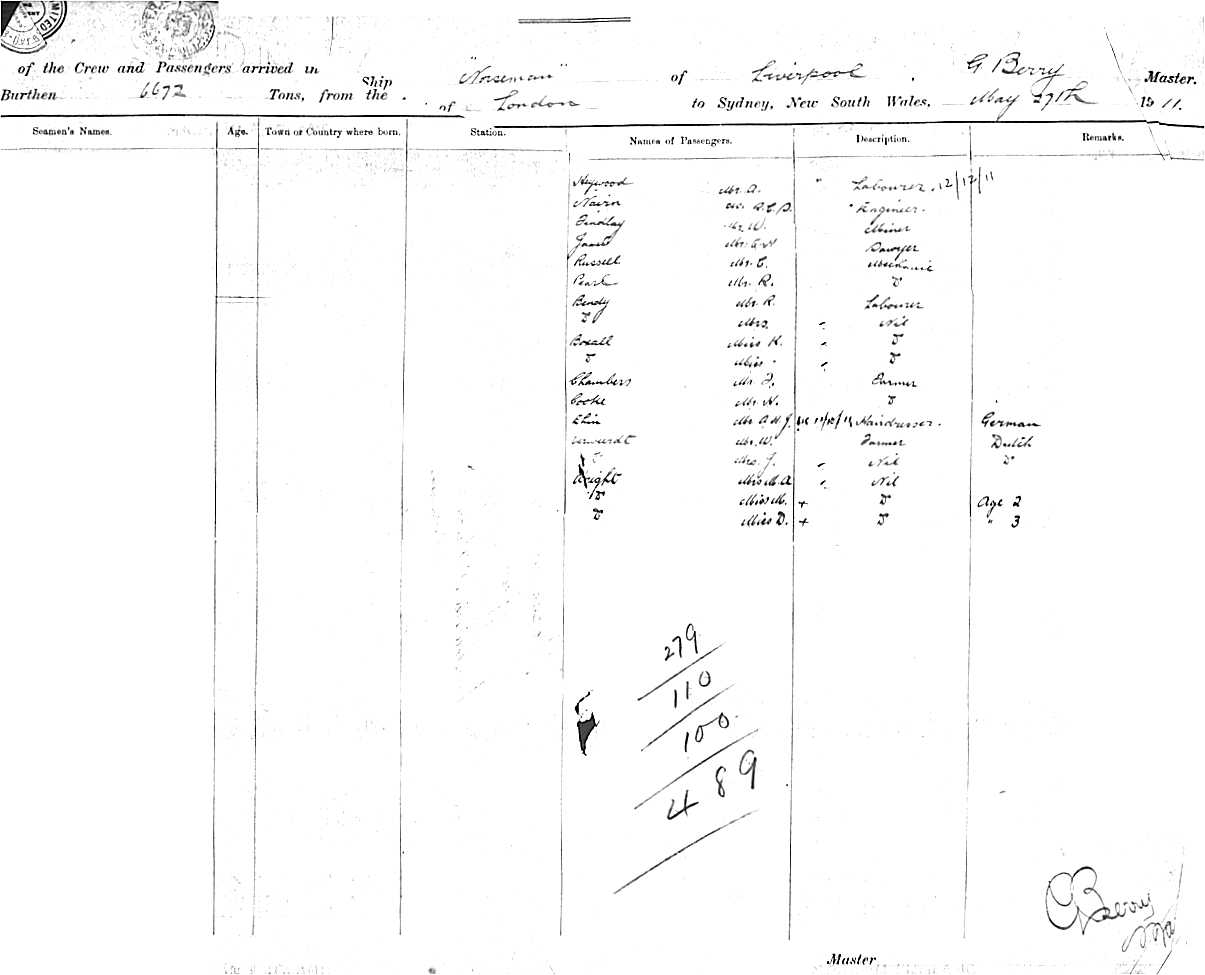 of the Crew and Passengers arrived in Ship "Norseman" of Liverpool, G Berry Master.
Burthen 6672 Tons, from the of London to Sydney, New South Wales, May 27th 1911.
Seamen's Names. Age. Town or Country where born. Station. Names of Passengers. Description. Remarks.
Heywood Mr A. " Labourer. 12/12/11
Nairn " Engineer.
Findlay Mr. W. Miner
Mr. Sawyer
Russell Mr. C. Mechanic
Pearl Mr. R. D
Bendy Mr. R. Labourer
D Mrs. " Nil
Boxall Miss K. " D
D Miss - " D
Chambers Mr F. Farmer
Cooke Mr H. D
Mr A.H.J. Hairdresser. German
Mr. W. Farmer Dutch
D Mrs. J. " Nil D
Wright Miss M. A " Nil
D Miss M. + D Age 2
D Miss D. + D " 3
279
110
100
489
G Berry
Master